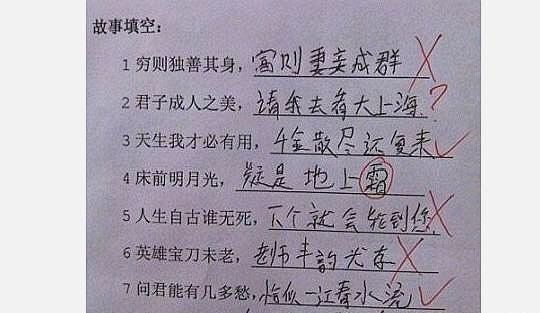 故事填空:
1 穷则独善其身，富则妻妾成群
2 君子成人之美，请我去看大上海?
3 天生我才必有用，千金散尽还复来
4 床前明月光，疑是地上霜
5 人生自古谁无死，下个就会轮到您
6 英雄宝刀未老，老师丰韵尤存
7 问君能有几多愁，恰似一江春水流